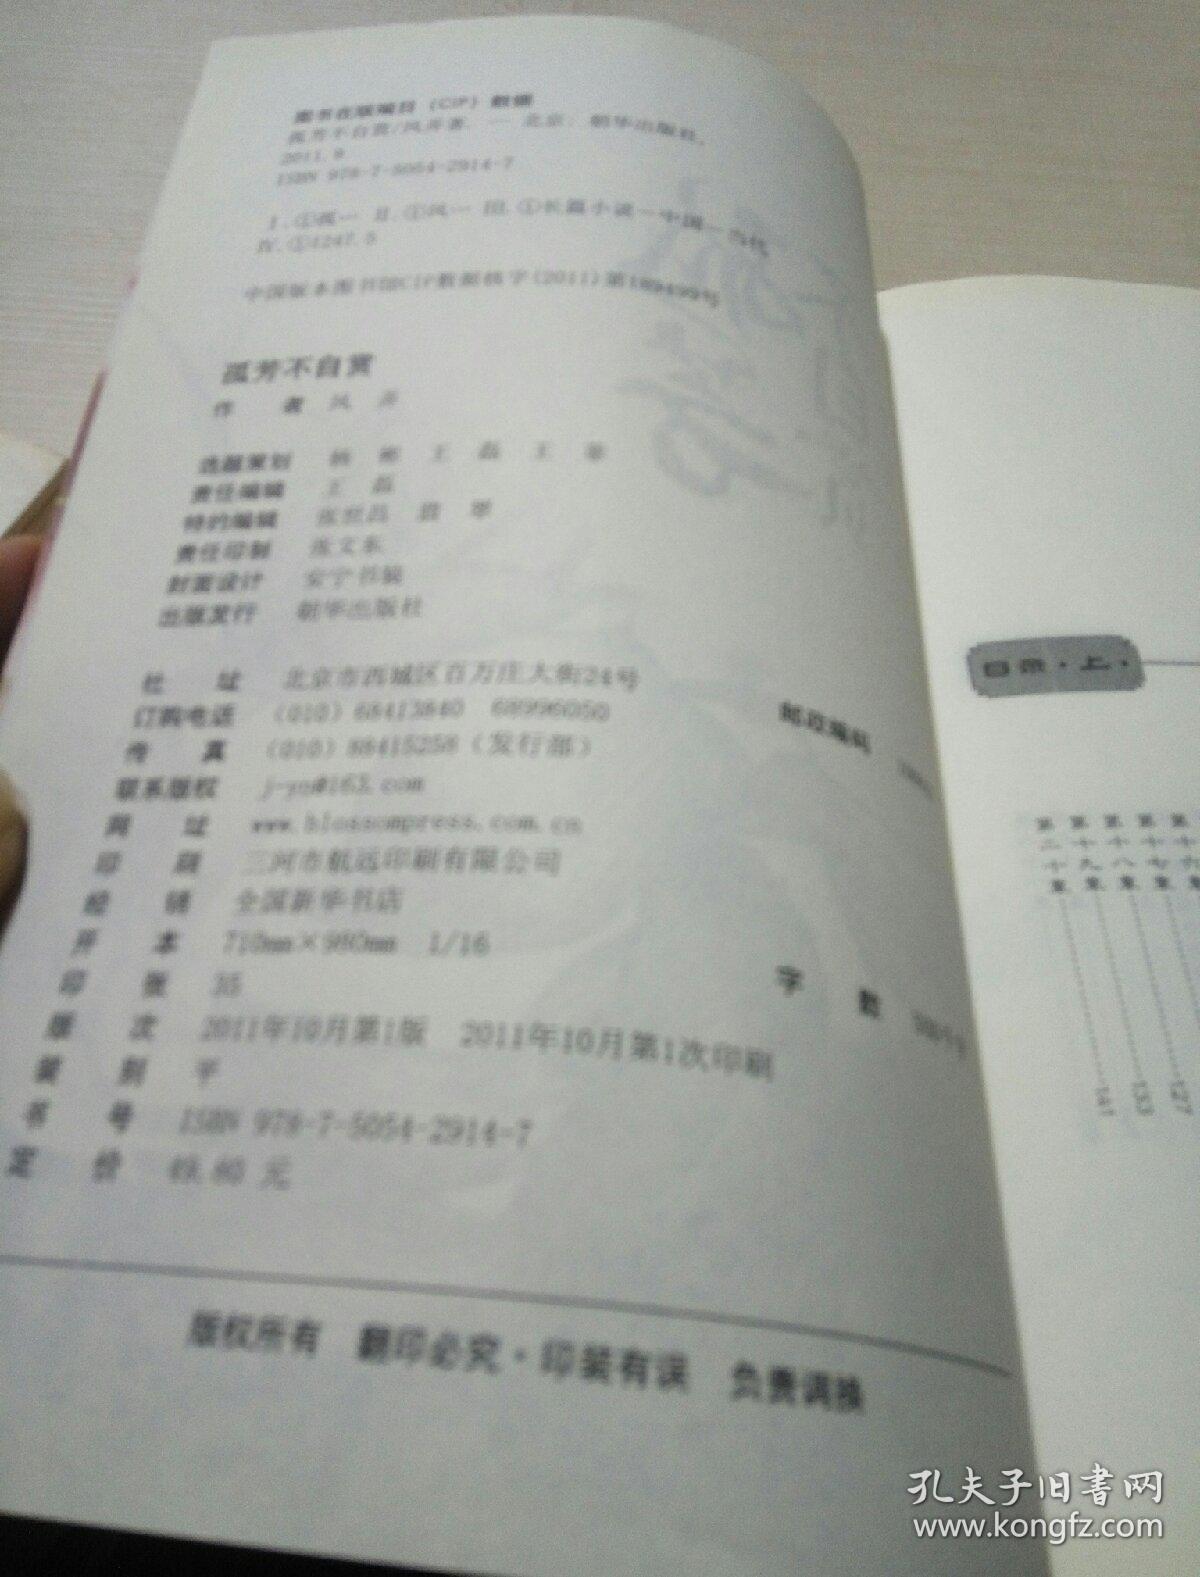 图书在版编目（CIP）数据
孤芳不自赏/风弄著. — 北京：朝华出版社,
2011.9
ISBN 978-7-5054-2914-7
Ⅰ.①孤… Ⅱ.①风… Ⅲ.①长篇小说—中国—当代
Ⅳ.①I247.5
中国版本图书馆CIP数据核字(2011)第189499号
孤芳不自赏
作 者 风 弄
选题策划 杨 彬 王 磊 王
责任编辑 王 磊
特约编辑 张世昌
责任印制 张文东
封面设计 安宁书装
出版发行 朝华出版社
社 址 北京市西城区百万庄大街24号 邮政编码
订购电话 （010）68413840 68996050
传 真 （010）88415258（发行部）
联系版权 j-yn@163.com
网 址 www.blossompress.com.cn
印 刷 三河市航远印刷有限公司
经 销 全国新华书店
开 本 710mm×980mm 1/16 字 数
印 张 35
版 次 2011年10月第1版 2011年10月第1次印刷
装 别 平
书 号 ISBN 978-7-5054-2914-7
定 价 49.80 元
版权所有 翻印必究·印装有误 负责调换
目录·上·
第十六章
第十七章 127
第十八章 133
第十九章 141
第二十章
孔夫子旧书网
www.kongfz.com